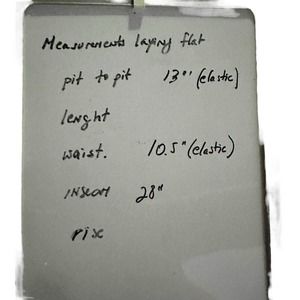 Measurements laying flat
pit to pit 13" (elastic)
lenght
waist. 10.5" (elastic)
INSEAM 28"
rise